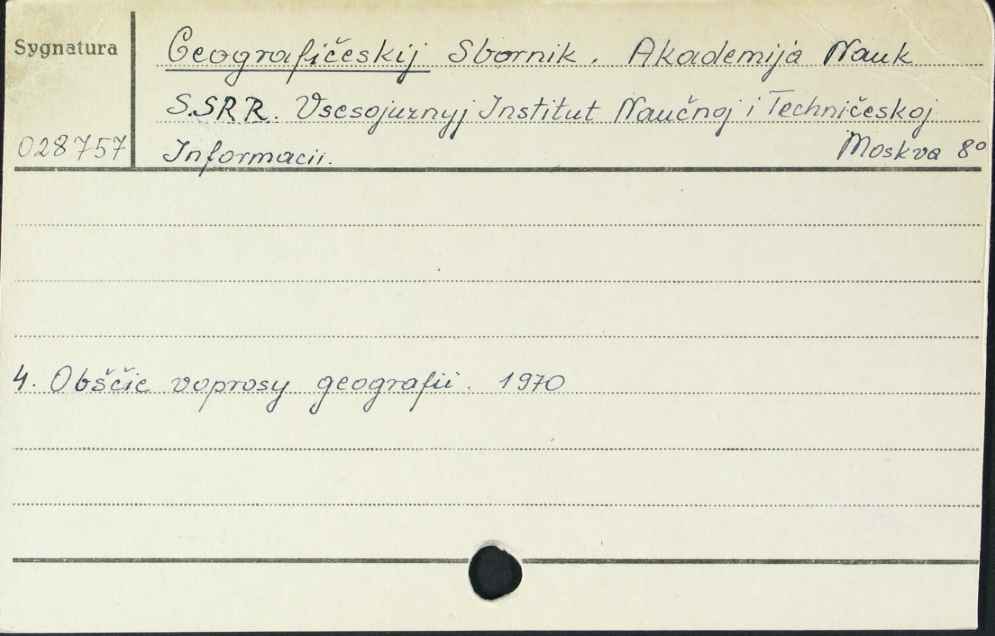 Sygnatura
Geografičeskij Sbornik. Akademija Nauk
S.SRR. Vsesojuznyj Institut Naučnoj i Techničeskoj
028757
Informacii. Moskva 8°
4. Obščie voprosy geografii. 1970